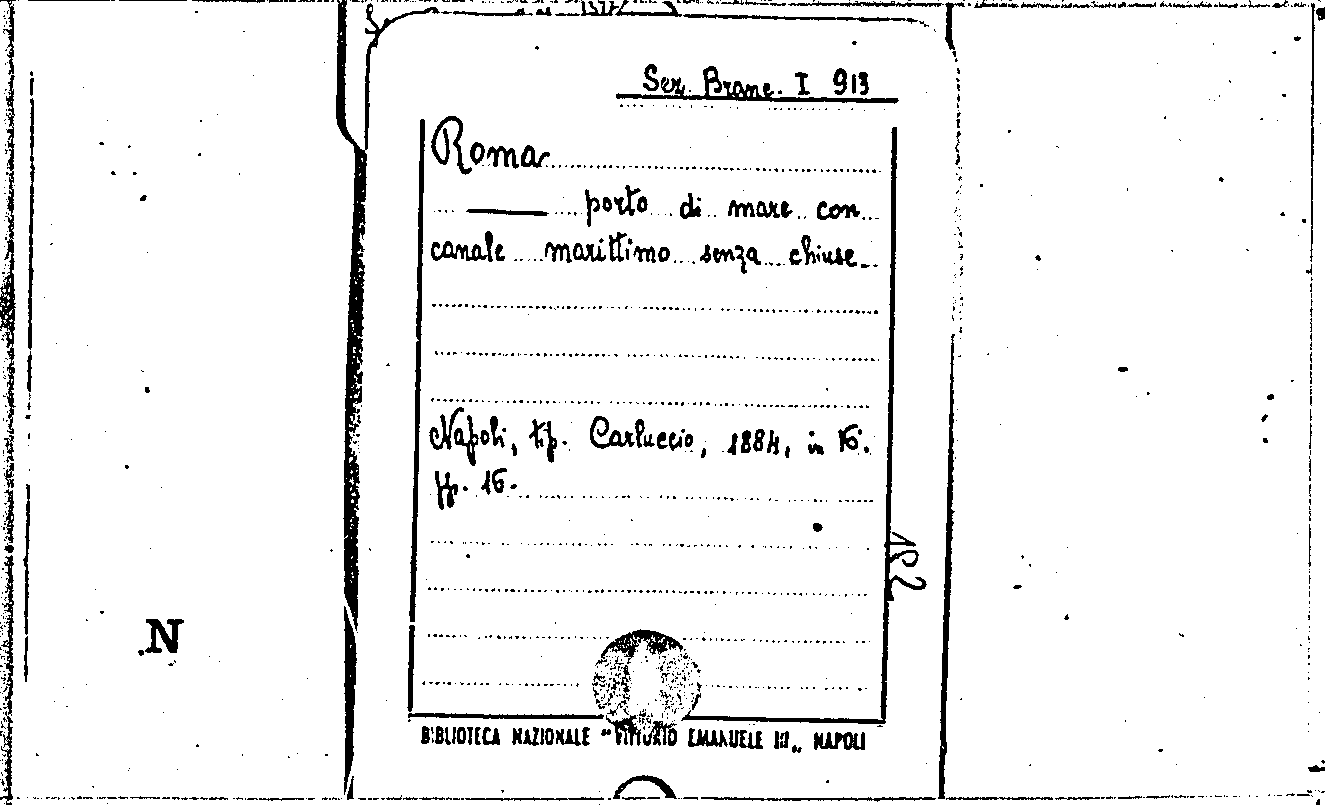 Sez. Branc. I 913
Roma
—— porto di mare con
canale marittimo senza chiuse
Napoli, tip. Carluccio, 1884, in 16.
pp. 16.
BIBLIOTECA NAZIONALE "VITTORIO EMANUELE III„ NAPOLI
N